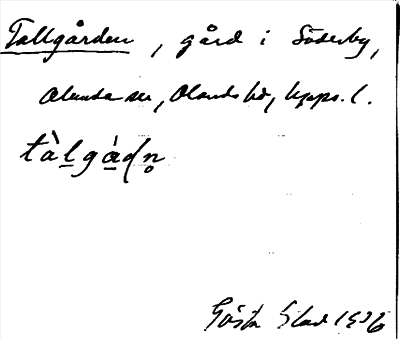 Tallgården, gård i Söderby,
Alunda sn, Olands hd, Upps. l.
tàl̲gá̲dn̥
Gösta 1936